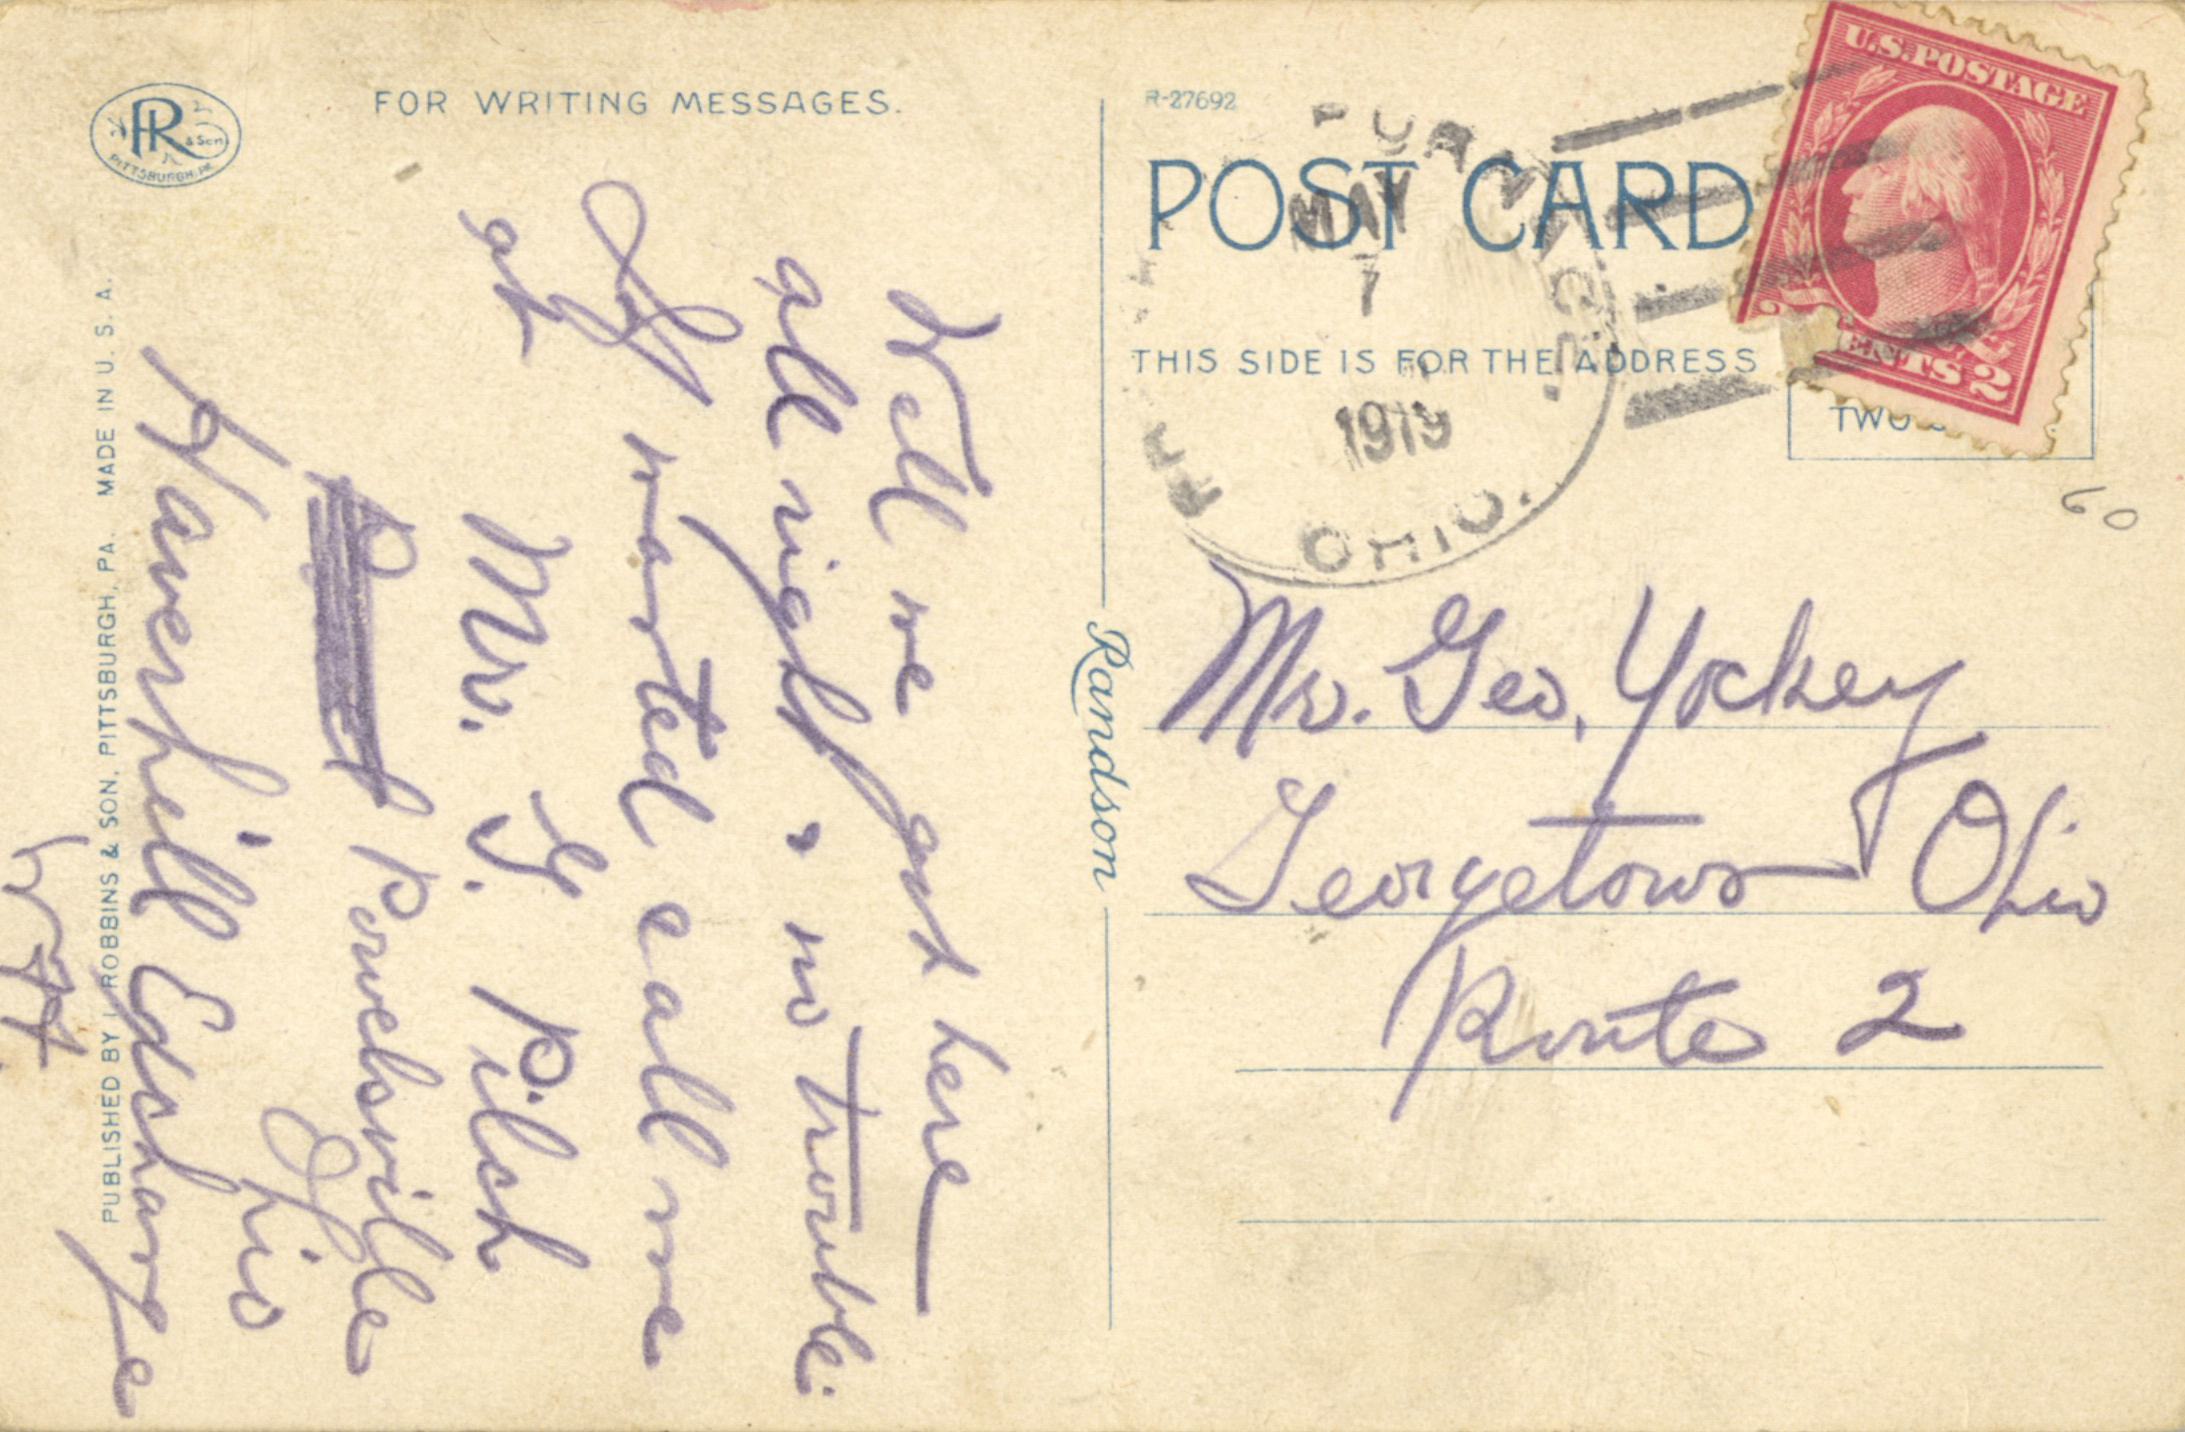 PR & Son
PITTSBURGH, PA.
FOR WRITING MESSAGES.
Well we got here
all right, no trouble.
If wanted call me
at Mr. G. Pilch
Powelsville
Ohio
Haverhill Exchange
PUBLISHED BY I. ROBBINS & SON, PITTSBURGH, PA. MADE IN U. S. A.
Randson
R-27692
POST CARD
THIS SIDE IS FOR THE ADDRESS
FURNACE.
MAY
7
1919
OHIO.
U.S. POSTAGE
CENTS 2
TWO
60
Mr. Geo. Yockey
Georgetown Ohio
Route 2